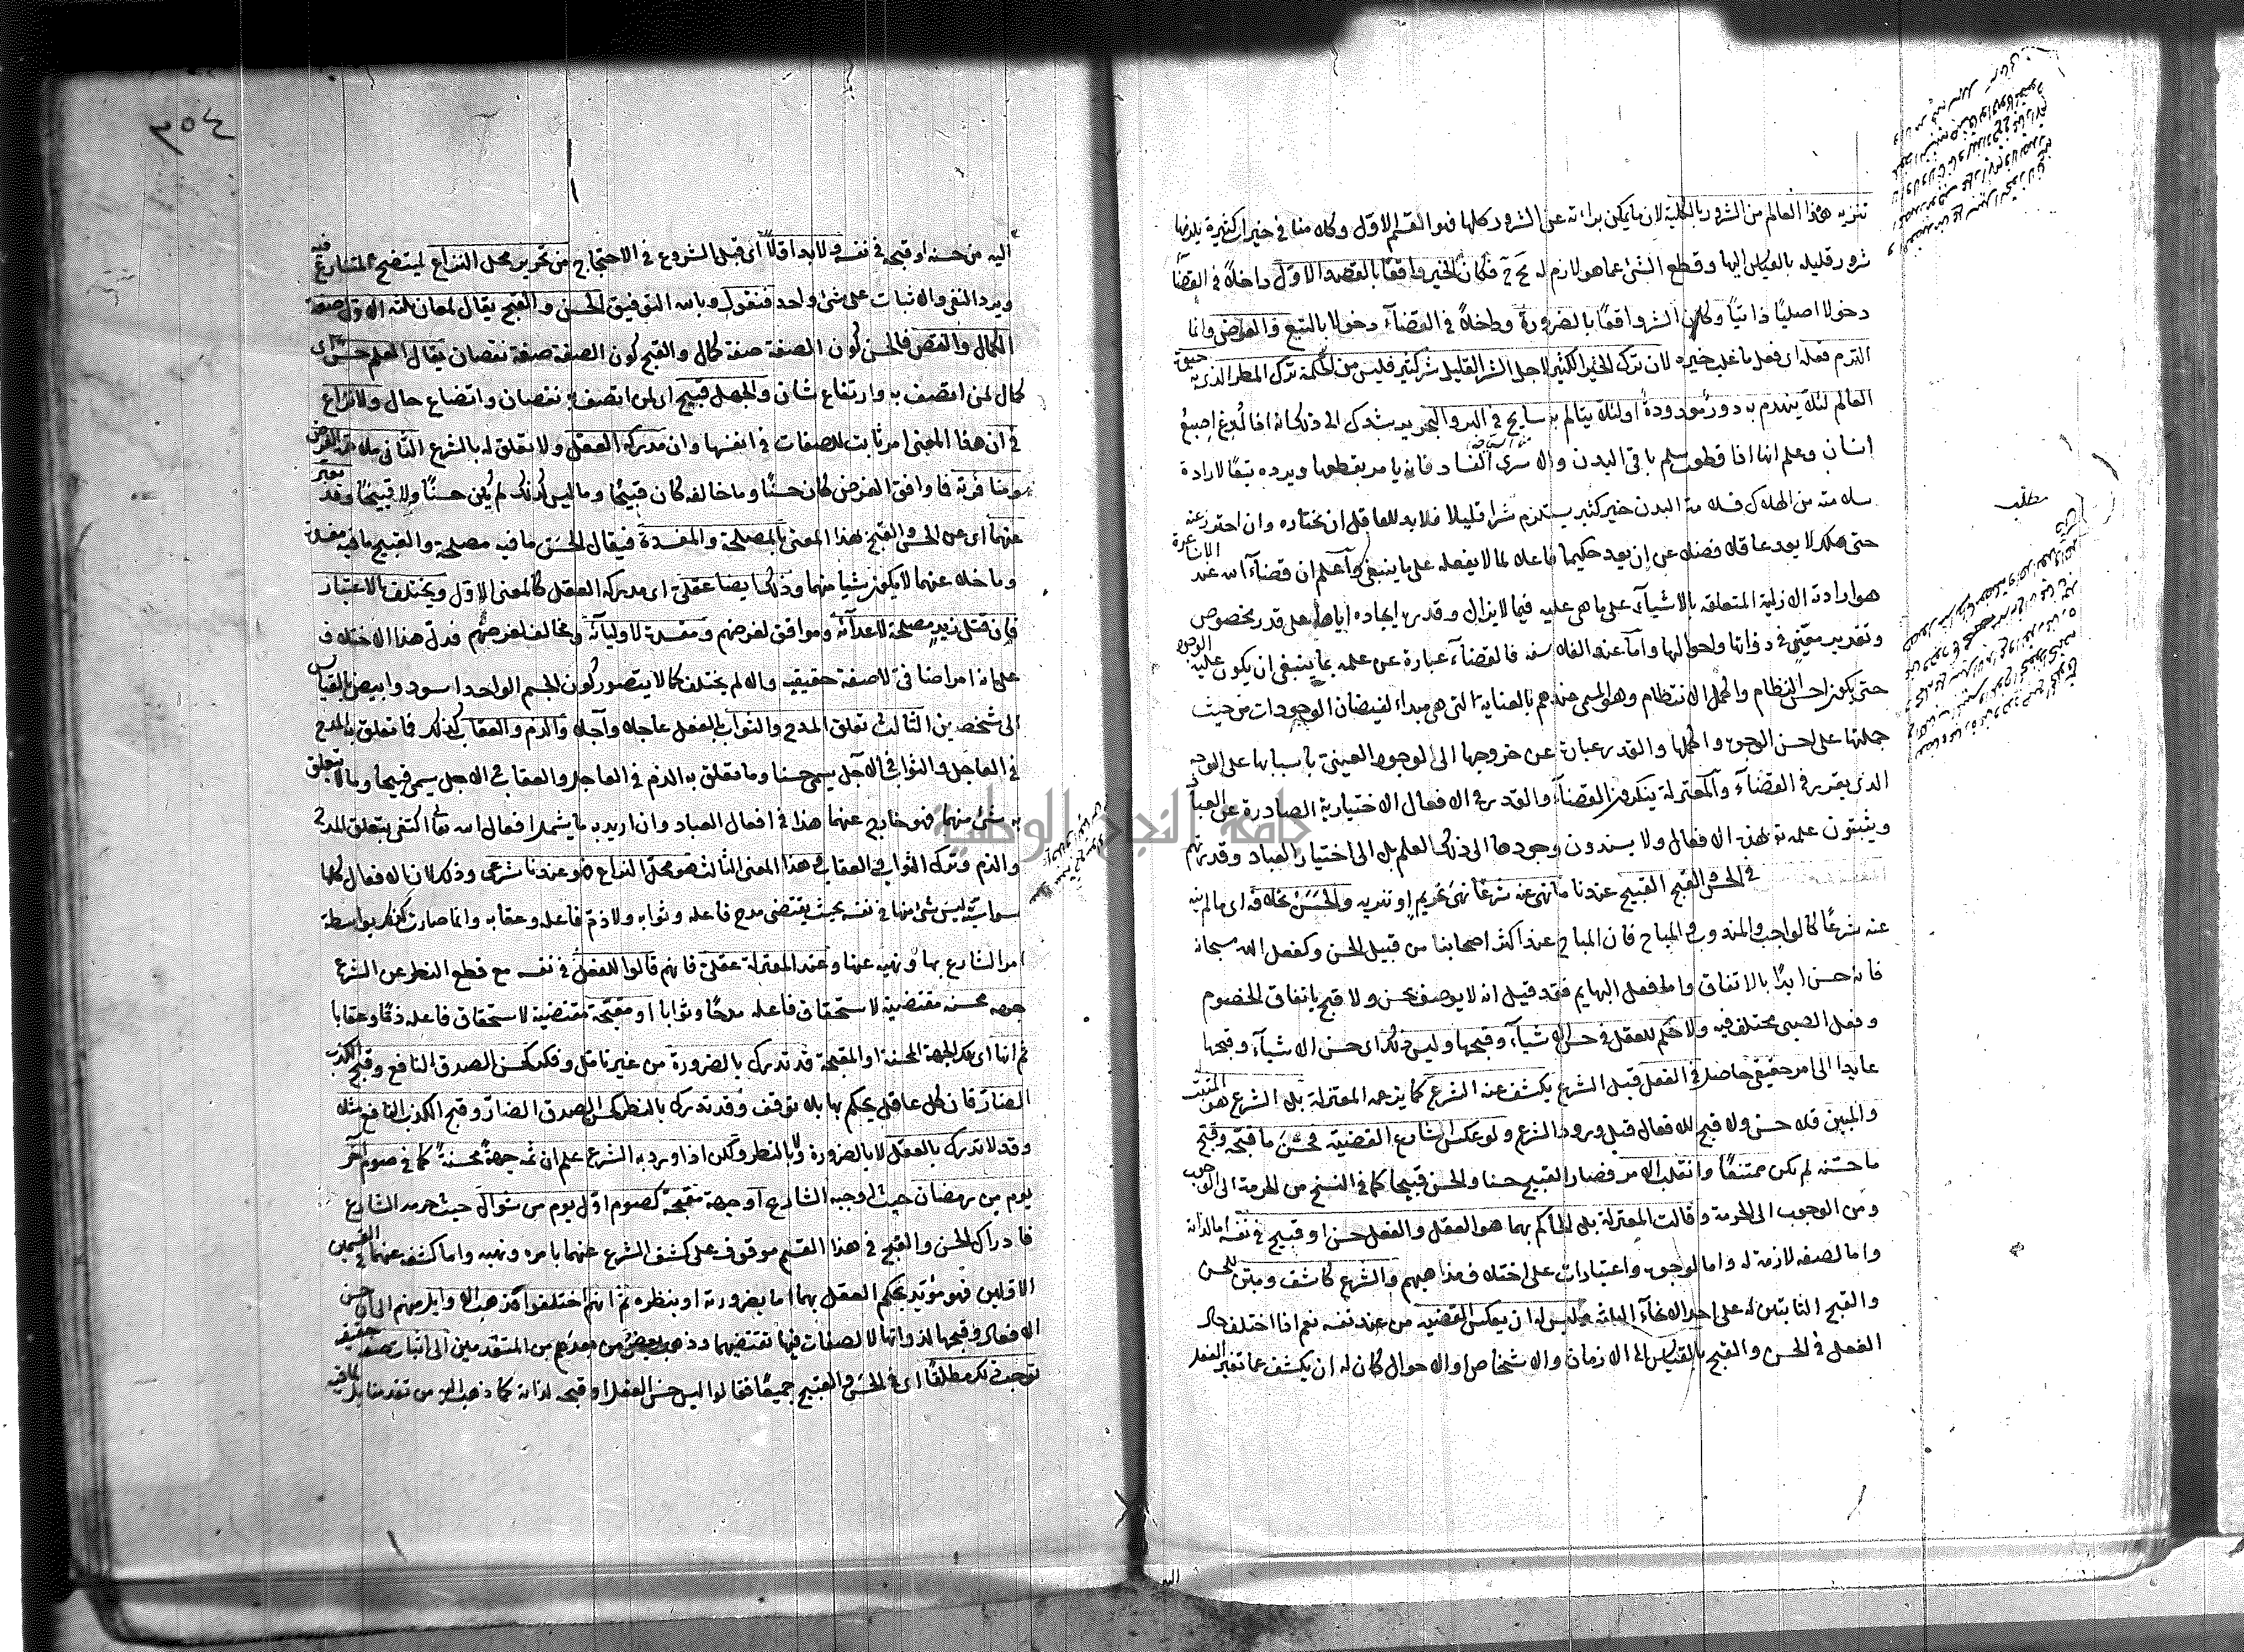 تنزيه هذا العالم من الشرور بالكلية لان ما يمكن براءته عن الشرور كلها فهو القسم الاول وكلامنا في خيرات كثيرة يلزمها
شرور قليلة بالقياس اليها وقطع الشئ عما هو لازم له مح فكان الخير واقعًا بالقصد الاول داخلاً في القضآء
دخولا اصليًا ذاتيًا وكان الشر واقعًا بالضرورة وداخلاً في القضآء دخولا بالتبع والعرض وانما
التزم فعله اى فعل ما غلب خيره لان ترك الخير الكثير لاجل الشر القليل شر كثير فليس من الحكمة ترك المطر الذى به حيوة
العالم لئلا ينهدم به دور معدودة او لئلا يتالم به سايح في البر والبحر يرشدك الى ذلك انه اذا لدغ اصبع
انسان وعلم انها اذا قطعت سلم باقى البدن والا سرى الفساد فانه يامر بقطعها ويريده تبعًا لارادة
سلامته من الهلاك فسلامة البدن خير كثير يستلزم شرا قليلا فلا بد للعاقل ان يختاره وان احترز عنه
حتى هلك لا يعد عاقلا فضلا عن ان يعد حكيما فاعلا لما يفعله على ما ينبغى واعلم ان قضآء الله عند الاشاعرة
هو ارادته الازلية المتعلقة بالاشيآء على ما هى عليه فيما لا يزال وقدره ايجاده اياها على قدر مخصوص
وتقدير معين في ذواتها واحوالها واما عند الفلاسفة فالقضآء عبارة عن علمه بما ينبغى ان يكون عليه الوجود
حتى يكون احسن النظام واكمل الانتظام وهو المسمى عندهم بالعناية التى هى مبداء لفيضان الوجودات من حيث
جملتها على احسن الوجوه واكملها والقدر عبارة عن خروجها الى الوجود العينى باسبابها على الوجه
الذى يقرر في القضآء والمعتزلة ينكرون القضآء والقدر في الافعال الاختيارية الصادرة عن العباد
ويثبتون علمه تع بهذه الافعال ولا يسندون وجودها الى ذلك العلم بل الى اختيار العباد وقدرتهم
في الحسن والقبح القبيح عندنا ما نهى عنه شرعًا نهى تحريم او تنزيه والحسن بخلافه اى ما لم ينه
عنه شرعًا كالواجب والمندوب والمباح فان المباح عند اكثر اصحابنا من قبيل الحسن وكفعل الله سبحانه
فانه حسن ابدًا بالاتفاق واما فعل البهايم فقد قيل انه لا يوصف بحسن ولا قبح باتفاق الخصوم
وفعل الصبى مختلف فيه ولا حكم للعقل في حسن الاشيآء وقبحها وليس ذلك اى حسن الاشيآء وقبحها
عايدا الى امر حقيقى حاصل في الفعل قبل الشرع يكشف عنه الشرع كما يزعمه المعتزلة بل الشرع هو المثبت
والمبين فلا حسن ولا قبح للافعال قبل ورود الشرع ولو عكس الشارع القضية فحسن ما قبحه وقبح
ما حسنه لم يكن ممتنعًا وانقلب الامر فصار القبيح حسنا والحسن قبيحا كما في النسخ من الحرمة الى الوجوب
ومن الوجوب الى الحرمة وقالت المعتزلة بل الحاكم بهما هو العقل والفعل حسن او قبيح في نفسه اما لذاته
واما لصفة لازمة له واما لوجوه واعتبارات على اختلاف مذاهبهم والشرع كاشف ومبين للحسن
والقبح الثابتين له على احد الانحآء الثلثة وليس له ان يعكس القضية من عند نفسه نعم اذا اختلف حال
الفعل في الحسن والقبح بالقياس الى الازمان والاشخاص والاحوال كان له ان يكشف عما تغير الفعل
مطلب
اليه
٢٥٤
اليه من حسنه او قبحه في نفسه ولا بد اولاً اى قبل الشروع في الاحتجاج من تحرير محل النزاع ليتضح المتنازع فيه
ويرد النفى والاثبات على شئ واحد فنقول وبالله التوفيق الحسن والقبح يقال لمعان ثلثة الاول صفة
الكمال والنقص فالحسن كون الصفة صفة كمال والقبح كون الصفة صفة نقصان يقال العلم حسن اى
كمال لمن اتصف به وارتفاع شان والجهل قبيح اى لمن اتصف به نقصان واتضاع حال ولا نزاع
في ان هذا المعنى امر ثابت للصفات في انفسها وان مدركه العقل ولا تعلق له بالشرع الثانى ملايمة الغرض
ومنافرته فما وافق الغرض كان حسنًا وما خالفه كان قبيحًا وما ليس كذلك لم يكن حسنًا ولا قبيحًا وقد يعبر
عنهما اى عن الحسن والقبح بهذا المعنى بالمصلحة والمفسدة فيقال الحسن ما فيه مصلحة والقبيح ما فيه مفسدة
وما خلا عنهما لا يكون شيأ منهما وذلك ايضا عقلى اى مدركه العقل كالمعنى الاول ويختلف بالاعتبار
فان قتل زيد مصلحة لاعدآئه وموافق لغرضهم ومفسدة لاوليآئه ومخالف لغرضهم فدل هذا الاختلاف
على انه امر اضافى لا صفة حقيقية والا لم يختلف كما لا يتصور كون الجسم الواحد اسود وابيض بالقياس
الى شخصين الثالث تعلق المدح والثواب بالفعل عاجلا وآجلا والذم والعقاب كذلك فما تعلق به المدح
في العاجل والثواب في الآجل يسمى حسنا وما تعلق به الذم في العاجل والعقاب في الاجل يسمى قبيحا وما لا يتعلق
به شئ منهما فهو خارج عنهما هذا في افعال العباد وان اريد به ما يشمل افعال الله تعالى اكتفى بتعلق المدح
والذم وترك الثواب والعقاب وهذا المعنى الثالث هو محل النزاع فهو عندنا شرعى وذلك لان الافعال كلها
سواسية ليس شئ منها في نفسه بحيث يقتضى مدح فاعله وثوابه ولا ذم فاعله وعقابه وانما صارت كذلك بواسطة
امر الشارع بها ونهيه عنها وعند المعتزلة عقلى فانهم قالوا للفعل في نفسه مع قطع النظر عن الشرع
جهة محسنة مقتضية لاستحقاق فاعله مدحًا وثوابا او مقبحة مقتضية لاستحقاق فاعله ذمًا وعقابا
ثم انها اى تلك الجهة المحسنة او المقبحة قد تدرك بالضرورة من غير تامل وفكر كحسن الصدق النافع وقبح الكذب
الضار فان كل عاقل يحكم بها بلا توقف وقد تدرك بالنظر كحسن الصدق الضار وقبح الكذب النافع مثلا
وقد لا تدرك بالعقل لا بالضرورة ولا بالنظر ولكن اذا ورد به الشرع علم ان ثمه جهةً محسنةً كما في صوم آخر
يوم من رمضان حيث اوجبه الشارع او جهة مقبحة كصوم اول يوم من شوال حيث حرمه الشارع
فادراك الحسن والقبح في هذا القسم موقوف على كشف الشرع عنهما بامره ونهيه واما كشفه عنهما في القسمين
الاولين فهو مؤيد لحكم العقل بهما اما بضرورته او بنظره ثم انهم اختلفوا فذهب الاوايل منهم الى ان حسن
الافعال وقبحها لذواتها لا لصفات فيها تقتضيهما وذهب بعض من بعدهم من المتقدمين الى اثبات صفة حقيقية
توجب ذلك مطلقًا اى في الحسن والقبيح جميعًا فقالوا ليس حسن الفعل او قبحه لذاته كما ذهب اليه من تقدمنا بل لما فيه